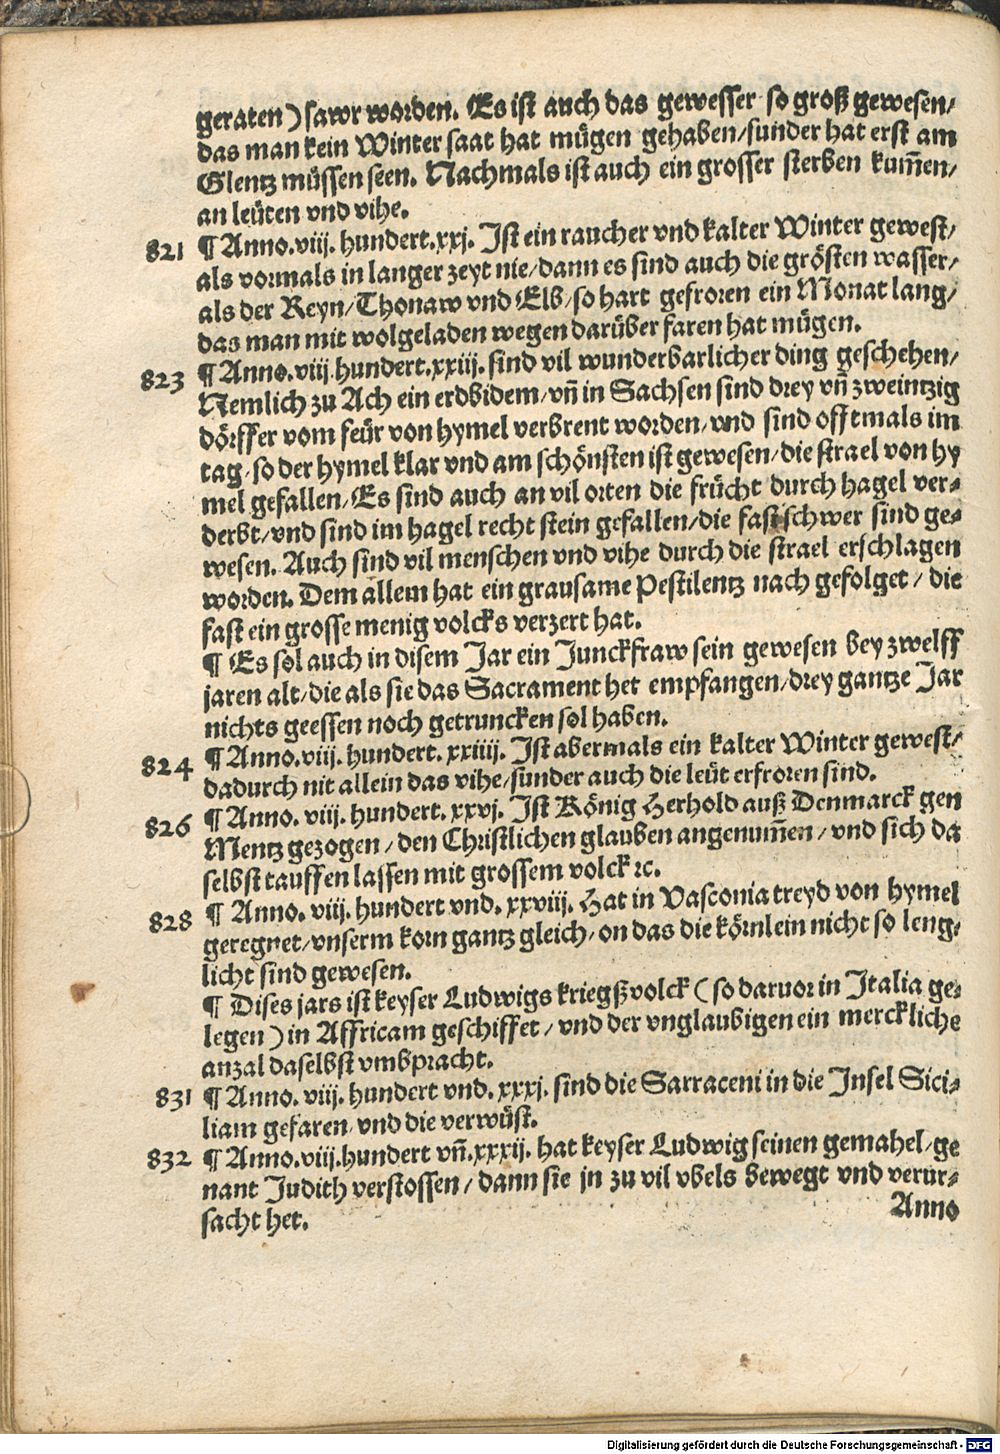 geraten) sawr worden. Es ist auch das gewesser so groß gewesen/
das man kein Winter saat hat mügen gehaben/sunder hat erst am
Glentz müssen seen. Nachmals ist auch ein grosser sterben kum̃en/
an leüten vnd vihe.
821 ¶ Anno.viij. hundert.xxj. Ist ein raucher vnd kalter Winter gewest/
als vormals in langer zeyt nie/dann es sind auch die grösten wasser/
als der Reyn/Thonaw vnd Elb/so hart gefroren ein Monat lang/
das man mit wolgeladen wegen darüber faren hat mügen.
823 ¶ Anno.viij.hundert.xxiij. sind vil wunderbarlicher ding geschehen/
Nemlich zu Ach ein erdbidem/vñ in Sachsen sind drey vñ zweintzig
dörffer vom feür von hymel verbrent worden/vnd sind offtmals im
tag/so der hymel klar vnd am schönsten ist gewesen/die strael von hy
mel gefallen/Es sind auch an vil orten die frücht durch hagel ver⸗
derbt/vnd sind im hagel recht stein gefallen/die fast schwer sind ge⸗
wesen. Auch sind vil menschen vnd vihe durch die strael erschlagen
worden. Dem allem hat ein grausame Pestilentz nach gefolget/ die
fast ein grosse menig volcks verzert hat.
¶ Es sol auch in disem Jar ein Junckfraw sein gewesen bey zwelff
jaren alt/die als sie das Sacrament het empfangen/drey gantze Jar
nichts geessen noch getruncken sol haben.
824 ¶ Anno.viij. hundert. xxiiij. Ist abermals ein kalter Winter gewest/
dadurch nit allein das vihe/sunder auch die leüt erfroren sind.
826 ¶ Anno. viij. hundert. xxvj. Ist König Herhold auß Denmarck gen
Mentz gezogen/den Christlichen glauben angenum̃en/vnd sich da
selbst tauffen lassen mit grossem volck ꝛc.
828 ¶ Anno. viij. hundert vnd. xxviij. Hat in Vasconia treyd von hymel
geregnet/vnserm korn gantz gleich/on das die körnlein nicht so leng⸗
licht sind gewesen.
¶ Dises jars ist keyser Ludwigs kriegßvolck (so daruor in Italia ge⸗
legen) in Affricam geschiffet/vnd der vnglaubigen ein merckliche
anzal daselbst vmbpracht.
831 ¶ Anno. viij. hundert vnd. xxxj. sind die Sarraceni in die Insel Sici⸗
liam gefaren/vnd die verwüst.
832 ¶ Anno.viij.hundert vñ.xxxij. hat keyser Ludwig seinen gemahel/ge
nant Judith verstossen/dann sie jn zu vil vbels bewegt vnd verur⸗
sacht het.
Anno
Digitalisierung gefördert durch die Deutsche Forschungsgemeinschaft - DFG